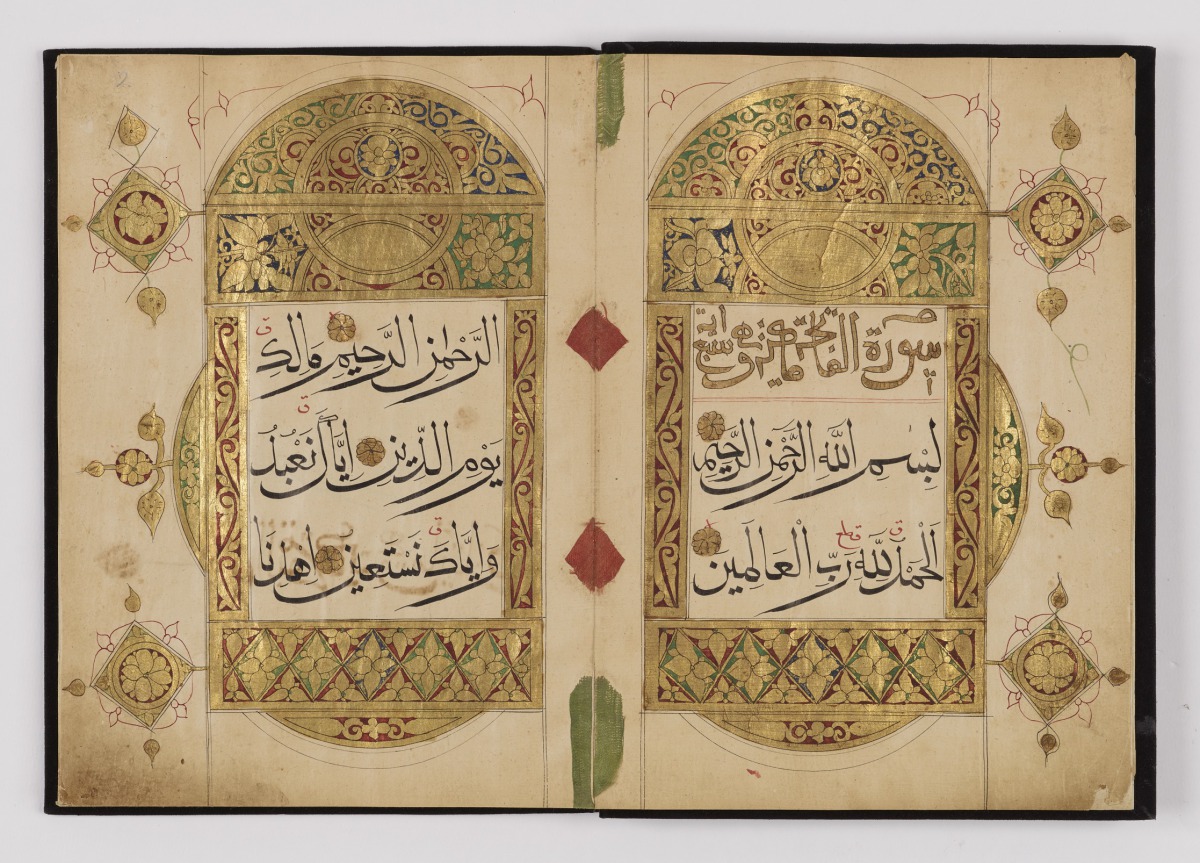 سورة الفاتحة مكية وهي سبع آية
بِسْمِ اللّٰهِ الرَّحْمٰنِ الرَّحِيمِ
اَلْحَمْدُ لِلّٰهِ رَبِّ الْعَالَمِينَ
الرَّحْمٰنِ الرَّحِيمِ مَالِكِ
يَوْمِ الدِّينِ اِيَّاكَ نَعْبُدُ
وَاِيَّاكَ نَسْتَعِينُ اِهْدِنَا